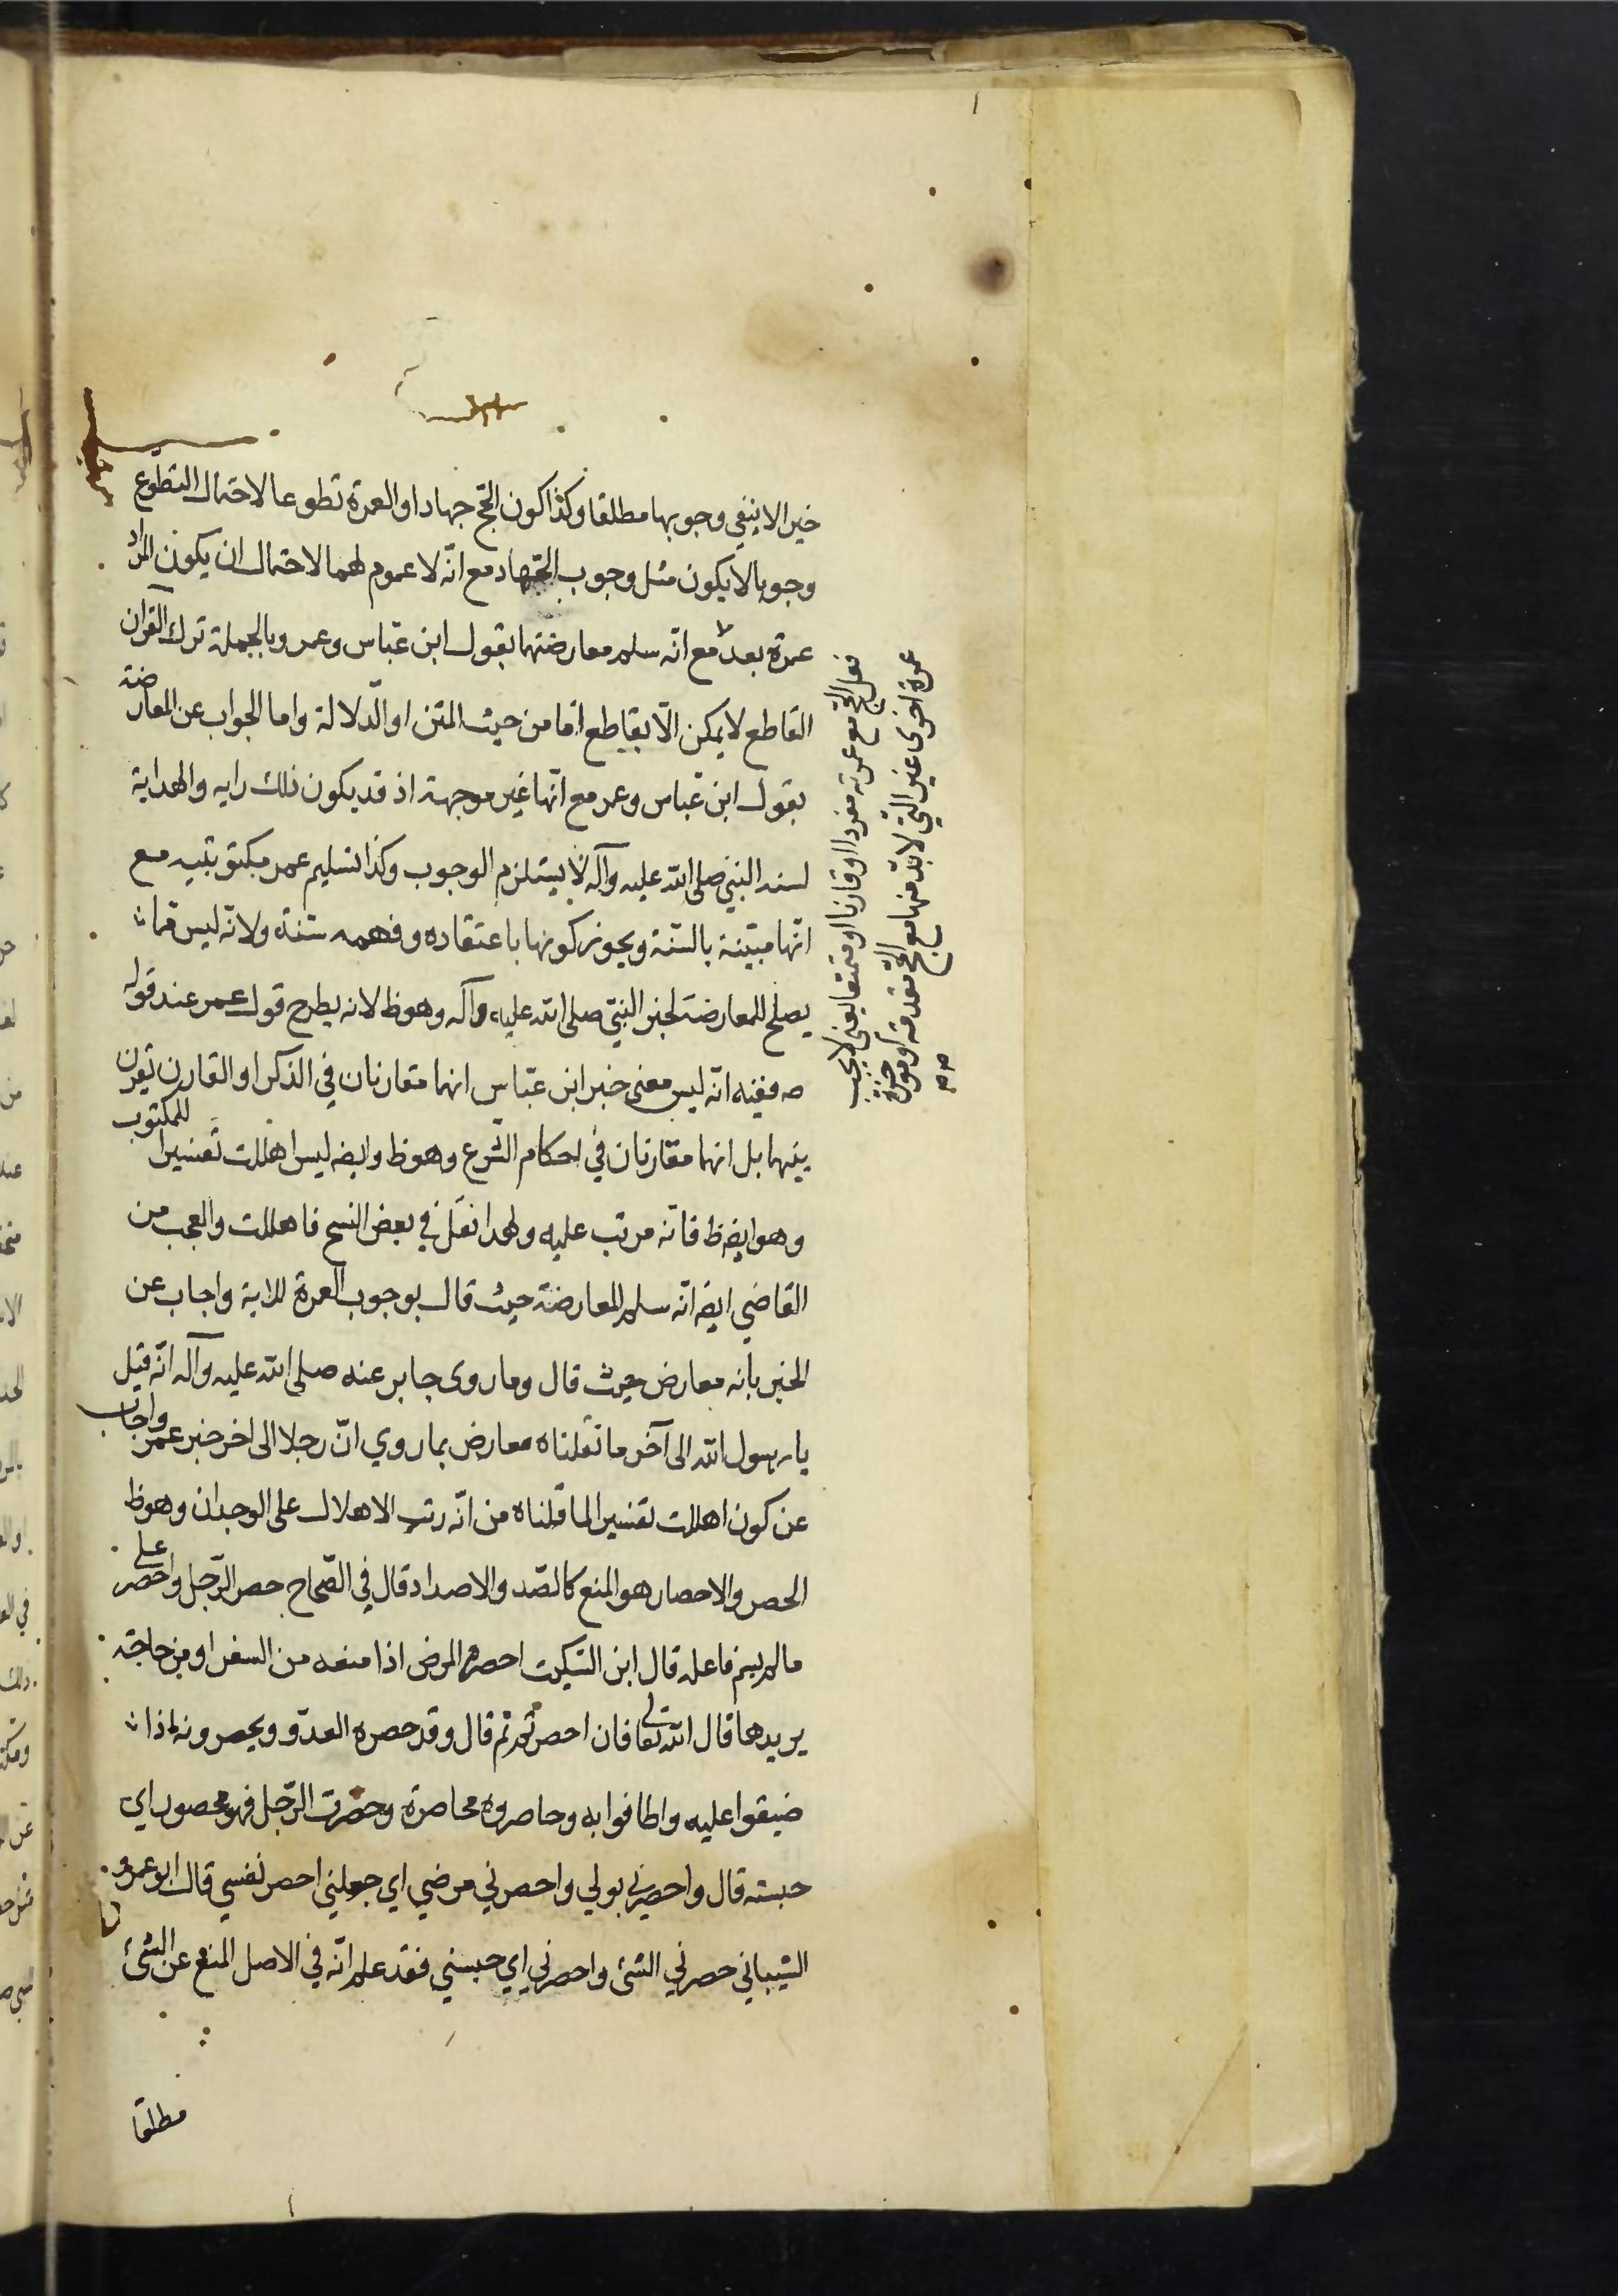 خيرا لا ينفي وجوبها مطلقا وكذا كون الحج جهادا والعمرة تطوعا لاحتمال التطوع
وجوبا لا يكون مثل وجوب الجهاد مع انّه لا عموم لهما لاحتمال ان يكون المراد
عمرة بعد مع انّه سلم معارضتهما بقول ابن عبّاس وعمر وبالجملة ترك القرآن
القاطع لا يمكن الّا بقاطع امّا من حيث المتن او الدّلالة واما الجواب عن المعارضة
بقول ابن عبّاس وعمر مع انّها غير موجهة اذ قد يكون ذلك رايه والهداية
لسنة النبيّ صلى الله عليه وآله لا يستلزم الوجوب وكذا تسليم عمر مكتوبتيه مع
انّها مبيّنة بالسّنة ويجوز كونها باعتقاده وفهمه سنّة ولانّه ليس قما
يصلح للمعارضة لخبر النبيّ صلى الله عليه وآله وهو ظ لانه يطرح قول عمر عند قوله
ص ففيه انّه ليس معنى خبر ابن عبّاس انهما متقارنان في الذكر او القارن تقرن
بينهما بل انهما مقارنان في احكام الشّرع وهو ظ وايضه ليس اهللت تفسيرا للمكتوب
وهو ايضه ظ فانّه مرتب عليه ولهذا نقل في بعض النسخ فاهللت والعجب من
القاضي ايضه انّه سلم المعارضة حيث قال بوجوب العمرة للاية واجاب عن
الخبر بأنه معارض حيث قال وما روى جابر عنه صلى الله عليه وآله انّه قيل
يا رسول الله الى آخر ما نقلناه معارض بما روي انّ رجلا الى اخر خبر عمر واجاب
عن كون اهللت تفسيرا لما قلناه من انّه رتب الاهلال على الوجدان وهو ظ
الحصر والاحصار هو المنع كالصّد والاصداد قال في الصّحاح حصر الرّجل واحصر على
ما لم يسم فاعله قال ابن السّكيت احصره المرض اذا منعه من السفر او من حاجة
يريدها قال الله تعالى فان احصرتم ثم قال وقد حصره العدوّ ويحصرونه اذا
ضيقوا عليه واطافوا به وحاصروه محاصرة وحصرت الرّجل فهو محصور اي
حبسته قال واحصرني بولي واحصرني مرضي اي جعلني احصر نفسي قال ابو عمرو
الشيباني حصرني الشئ واحصرني اي حبسني فقد علم انّه في الاصل المنع عن الشئ
مطلقا
فعل الحج مع عمرته مفردا او قارنا او متمتعا يعنى لا يجب
عمرة اخرى غير التي لا بدّ منها مع الحج مقدمة او مؤخرة